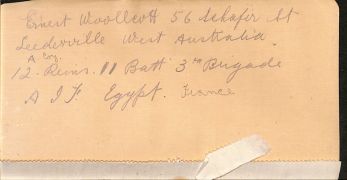 Ernest Woollcott 56 Schafer St
Leederville West Australia
A Coy.
12. Reins. 11 Batt 3rd Brigade
A I F. Egypt. France